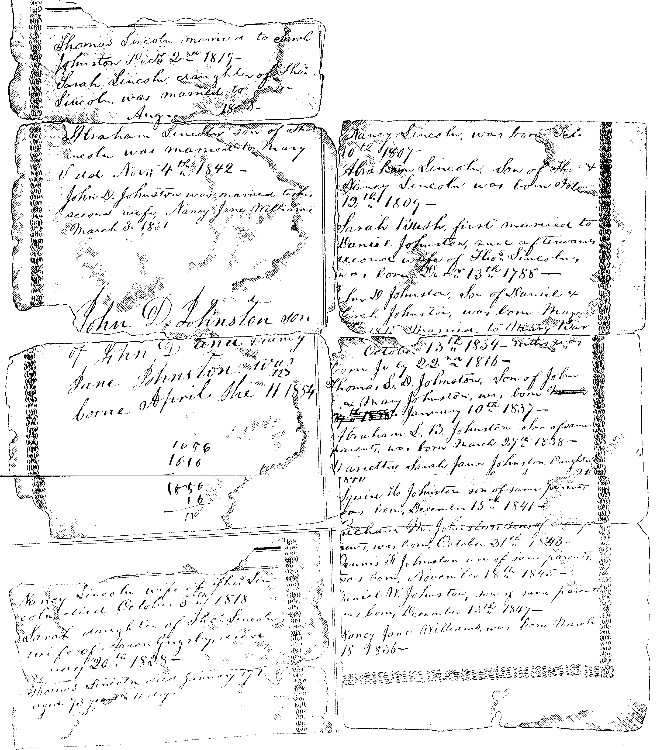 Thomas Lincoln married to Sarah
Johnston Dec 2nd 1819—
Sarah Lincoln daughter of Thos.
Lincoln was married to
Aug
Abraham Lincoln, son of Thos
Lincoln was married to Mary
Todd Nov. 4th 1842—
John D. Johnston was married to his
second wife, Nancy Jane Williams
March 5. 1851
John D. Johnston son
of John D and Nancy
Jane Johnston was
borne April the 11 1854
1616
16
Nancy Lincoln wife of Thos. Lin
coln, died October 5th 1818
Sarah, daughter of Thos. Lincoln
wife of Aaron Grigsby, died
uary 20th 1828—
Thomas Lincoln died January 17
aged 73 11 days
Nancy Lincoln, was born Feb.
10th 1807—
Abraham Lincoln, Son of Thos. &
Nancy Lincoln was born Feb.
12th 1809—
Sarah Bush, first married to
Daniel Johnston, and afterwards
second wife of Thos. Lincoln,
was born Dec. 13th 1788—
John D Johnston, Son of Daniel &
Sarah Johnston, was born May
1815 Married, to Mary Bar
October 13th 1834
born July 22nd 1816—
Thomas L. D. Johnston, Son of John
& Mary Johnston, was born
January 10th 1837—
Abraham L. B. Johnston Son of same
parents, was born March 27th 1838—
Marietta Sarah Jane Johnston Daughter
1840
Squire H. Johnston son of same parents
was born, December 15th 1841—
Richard M. Johnston son of
was born, October 21st
Dennis F. Johnston son of same parents
was born, November 18th 1845—
Daniel W. Johnston, son of same parents
was born, December 13th 1847—
Nancy Jane Williams, was born March
18 1836—